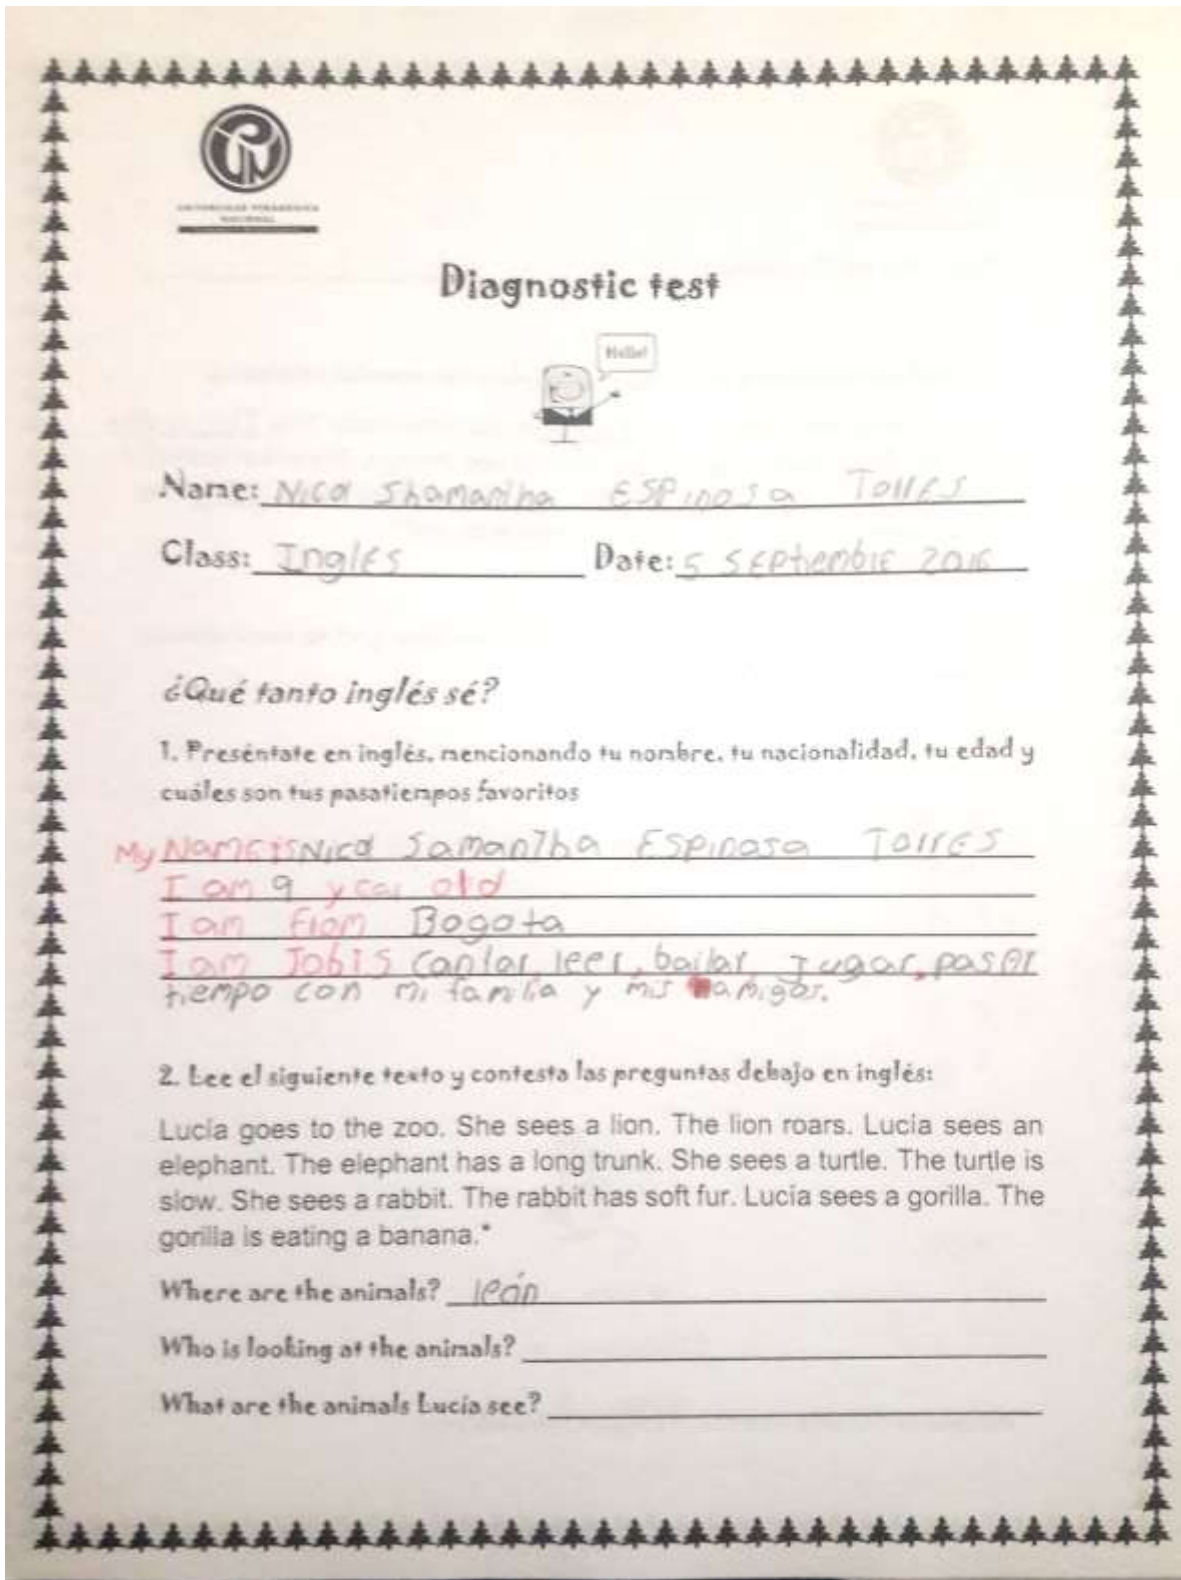 UNIVERSIDAD PEDAGOGICA
NACIONAL
Diagnostic test
Hello!
Name: Nicol Shamantha ESPinosa TorrES
Class: InglES Date: 5 SEPtiembrE 2016
¿Qué tanto inglés sé?
1. Preséntate en inglés, mencionando tu nombre, tu nacionalidad, tu edad y
cuáles son tus pasatiempos favoritos
My Name is Nicol Samantha ESPinosa TorrES
I am 9 year old
I am from Bogota
I am Jobis cantar, leer, bailar, Jugar, pasar
tiempo con mi familia y mis amigos.
2. Lee el siguiente texto y contesta las preguntas debajo en inglés:
Lucía goes to the zoo. She sees a lion. The lion roars. Lucía sees an
elephant. The elephant has a long trunk. She sees a turtle. The turtle is
slow. She sees a rabbit. The rabbit has soft fur. Lucía sees a gorilla. The
gorilla is eating a banana.*
Where are the animals? león
Who is looking at the animals?
What are the animals Lucía see?